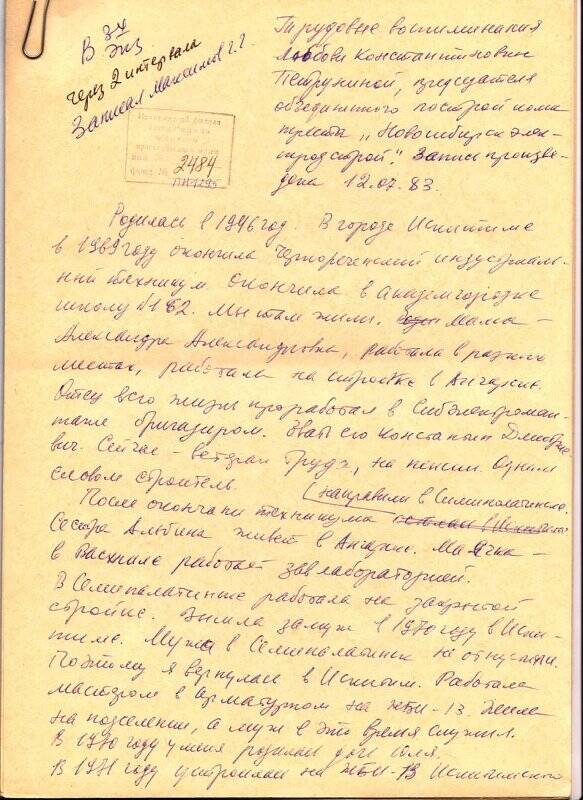 В 34
экз
через 2 интервала
Записал Максимов Г. Г.
2484
Трудовые воспоминания
Любови Константиновны
Петруниной, председателя
объединенного построй кома
треста „Новосибирск элек-
тродстрой". Запись произве-
дена 12.07.83.
Родилась в 1946 год. В городе Искитиме
в 1969 году окончила Чернореченский индустриаль-
ный техникум окончила в Академгородке
школу №162. Мы там жили. Мама —
Александра Александровна, работала в разных
местах, работала на стройке в Ангарске.
Отец всю жизнь проработал в Сибэлектромон-
таже бригадиром. Звать его Константин Дмитрие
вич. Сейчас — ветеран Труда, на пенсии. Одним
словом строитель.
(направили в Семипалатинск.
После окончания техникума
Сестра Альбина живет в Ангарске. Мамочка —
в Васхниле работает завлабораторией.
В Семипалатинске работала на закрытой
стройке. Вышла замуж в 1970 году в Иски-
тиме. Мужа в Семипалатинск не отпустили.
Поэтому я вернулась в Искитим. Работала
мастером в арматурном на ЖБИ-13. Жила
на поселении, а муж в это время служил.
В 1970 году у меня родилась дочь Юля.
В 1971 году устроилась на ЖБИ-13 Искитимского